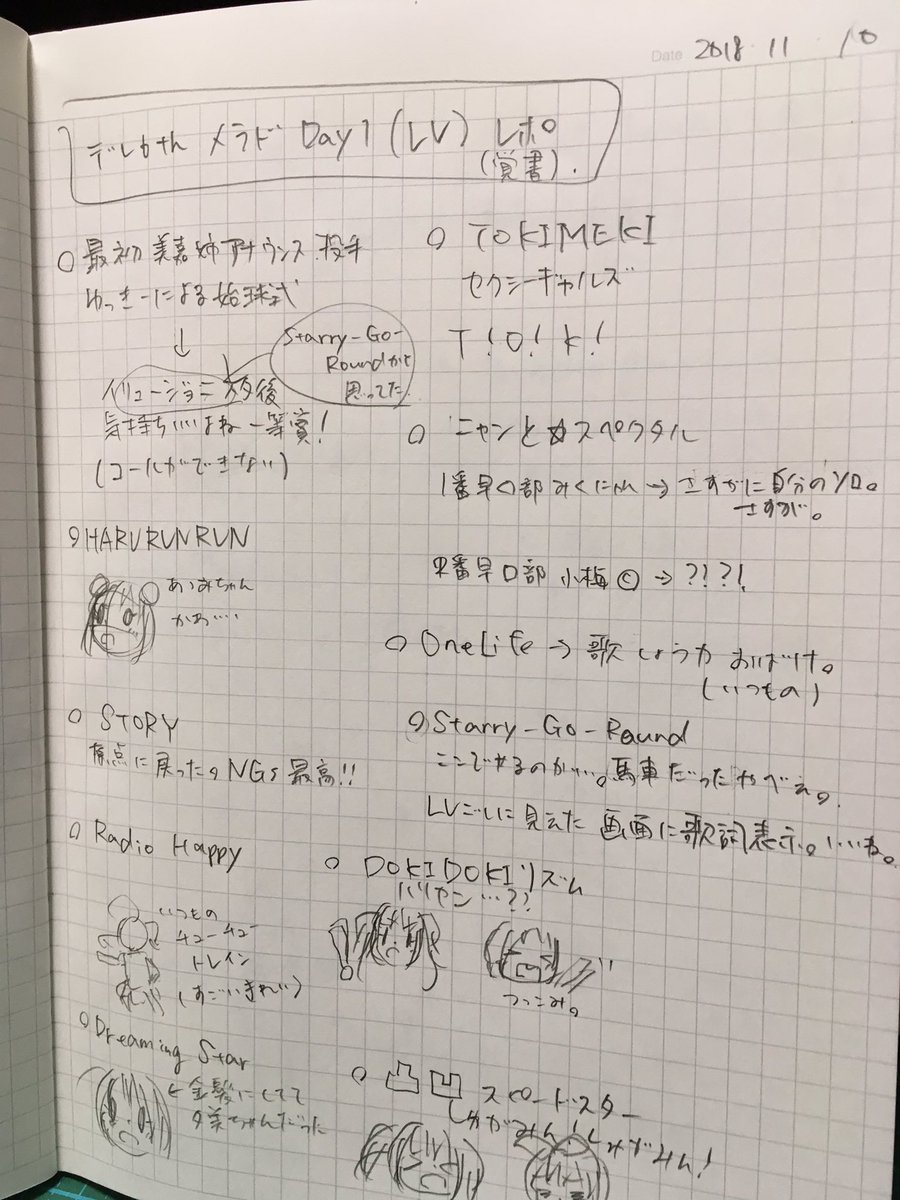 Date 2018 11 10
デレ6th メラド Day1 (LV) レポ
(覚書).
○最初 美嘉姉アナウンス 投手
ゆっきーによる始球式
↓
Starry-Go-
Roundかと
思ってた
イリュージョニ 放後
気持ちいいよね一等賞!
(コールができない)
○HARURUNRUN
あゝみちゃん
かお……
○ STORY
原点に戻ったのNGs最高!!
○ Radio Happy
いつもの
チューチュー
トレイン
(すごいきれい)
○Dreaming Star
←金髪にしてて
夕美ちゃんだった
○ TOKIMEKI
セクシーギャルズ
T!O!K!
○ ニャンと☆スペクタル
1番早口部みくにゃん→さすがに自分のソロ。
さすが。
2番早口部 小梅©→???!
○ OneLife→歌しょうか おばけ。
(いつもの)
○Starry-Go-Round
ここでやるのか…。馬車だったやべぇ。
LVごしに見えた 画面に歌詞表示。いいね。
○ DOKIDOKIリズム
バリヤン…??
つっこみ。
○ 凸凹スピードスター
しゅがみん!しゅがみん!